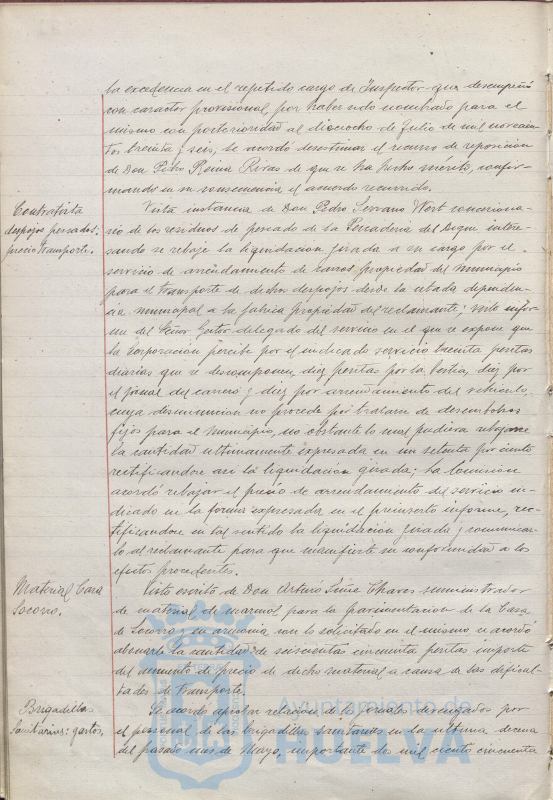 la excedencia en el repetido cargo de Inspector que desempeñó
con caracter provisional, por haber sido nombrado para el
mismo con posterioridad al dieciocho de Julio de mil novecien-
tos treinta y seis, se acordó desestimar el recurso de reposición
de Don Pedro Reina Rivas de que se ha hecho mérito, confir-
mando en su consecuencia el acuerdo recurrido.
Contratista
despojos pescados:
precio transporte.
Vista instancia de Don Pedro Serrano Wert concesiona-
rio de los residuos de pescado de la Pescadería del Dique intere-
sando se rebaje la liquidación girada a su cargo por el
servicio de arrendamiento de carros propiedad del municipio
para el transporte de dichos despojos desde la citada dependen-
cia municipal a la fabrica propiedad del reclamante; visto infor-
me del Señor Gestor delegado del servicio en el que se expone que
la Corporación percibe por el indicado servicio treinta pesetas
diarias que se descomponen, diez pesetas por la bestia, diez por
el jornal del carrero y diez por arrendamiento del vehículo,
cuya disminución no procede por tratarse de desembolsos
fijos para el municipio, no obstante lo cual pudiera rebajarse
la cantidad ultimamente expresada en un setenta por ciento
rectificandose asi la liquidación girada; la Comisión
acordó rebajar el precio de arrendamiento del servicio in-
dicado en la forma expresada en el preinserto informe, rec-
tificandose en tal sentido la liquidación girada y comunicar-
lo al reclamante para que manifieste su conformidad a los
efectos procedentes.
Material Casa
Socorro.
Visto escrito de Don Arturo Chaves suministrador
de material de marmol para la pavimentación de la Casa
de Socorro y en armonia con lo solicitado en el mismo se acordó
abonarle la cantidad de seiscientas cincuenta pesetas importe
del aumento de precio de dicho material a causa de las dificul-
tades de transporte.
Brigadillas
Sanitarias: gastos.
Se acordó aprobar relación de los jornales devengados por
el personal de las brigadillas sanitarias en la ultima decena
del pasado mes de Mayo, importante dos mil ciento cincuenta
Ayuntamiento de
HUELVA